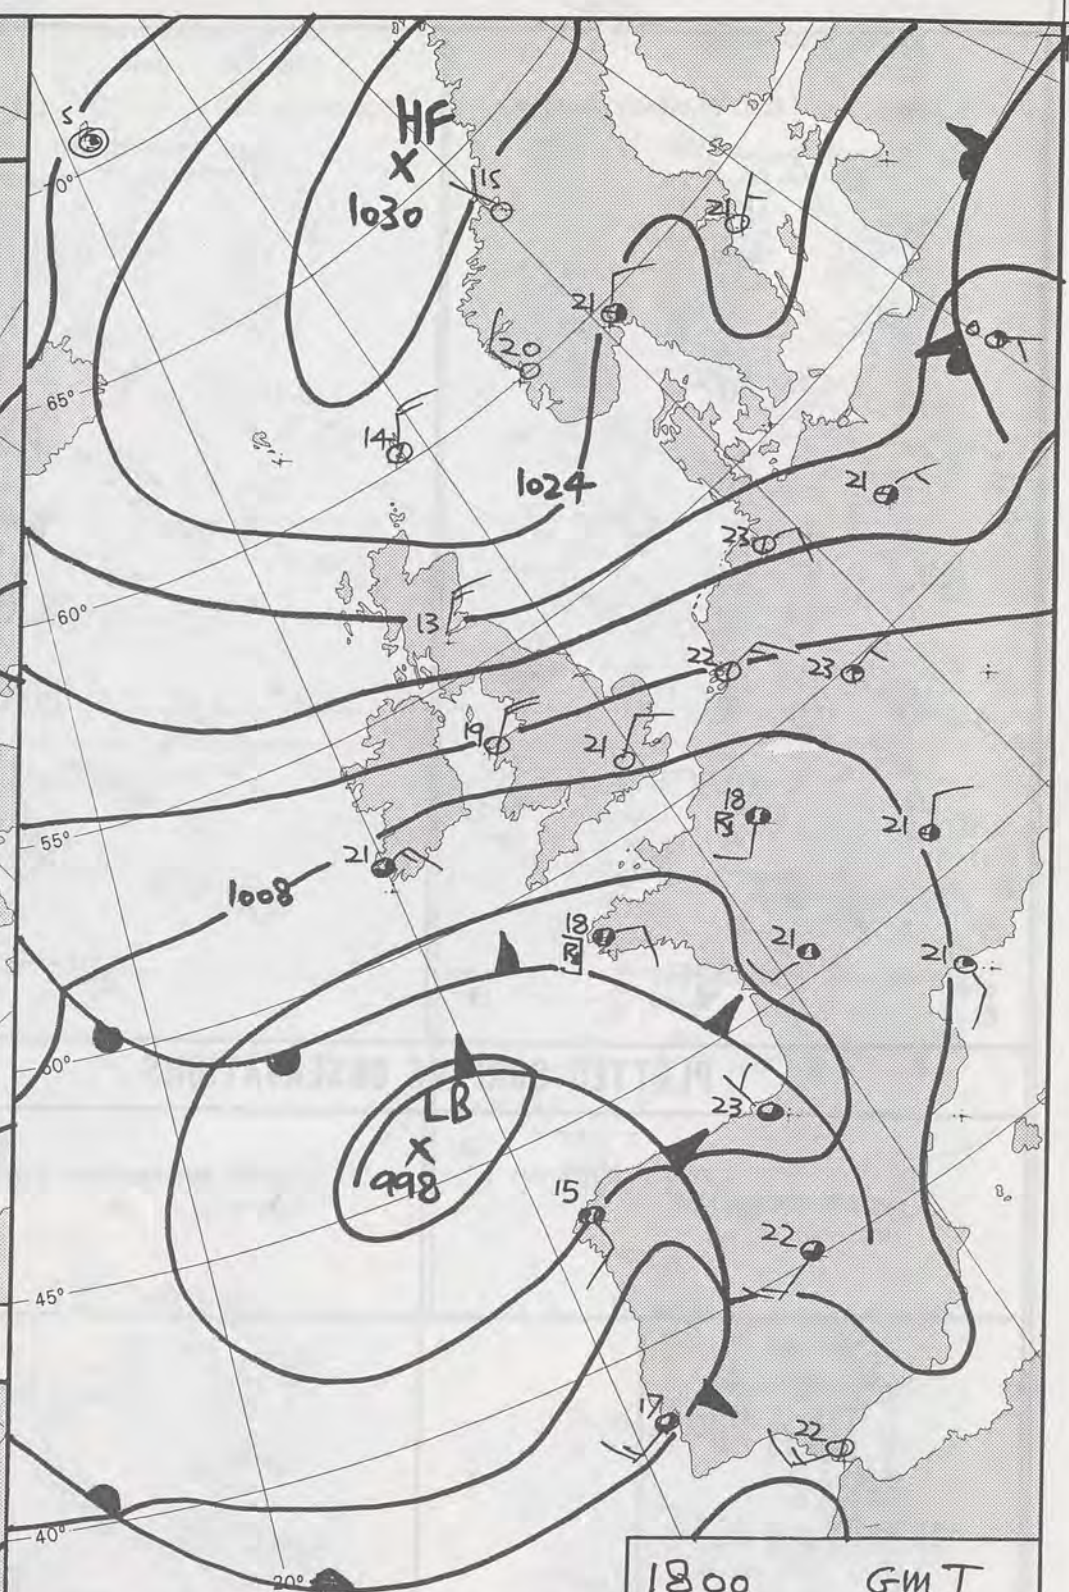 5
HF
X
1030
15
21
70°
21
20
0
65°
14
1024
21
23
60°
13
22
23
19
21
55°
18
21
21
1008
18
21
21
50°
LB
X
998
23
15
22
45°
17
22
40°
20°
1800 GMT